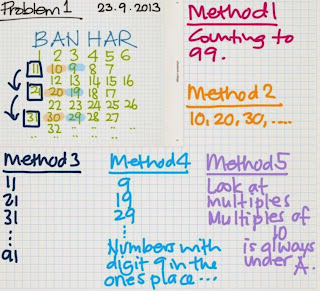 Problem 1 23.9.2013
BAN HAR
1 2 3 4 5 6
11 10 9 8 7
12 13 14 15 16
21 20 19 18 17
22 23 24 25 26
31 30 29 28 27
32 .. ..
Method 1
Counting to
99.
Method 2
10, 20, 30, ....
Method 3
11
21
31
⋮
91
Method 4
9
19
29
⋮
Numbers with
digit 9 in the
ones place...
Method 5
Look at
multiples
Multiples of
10
is always
under A.